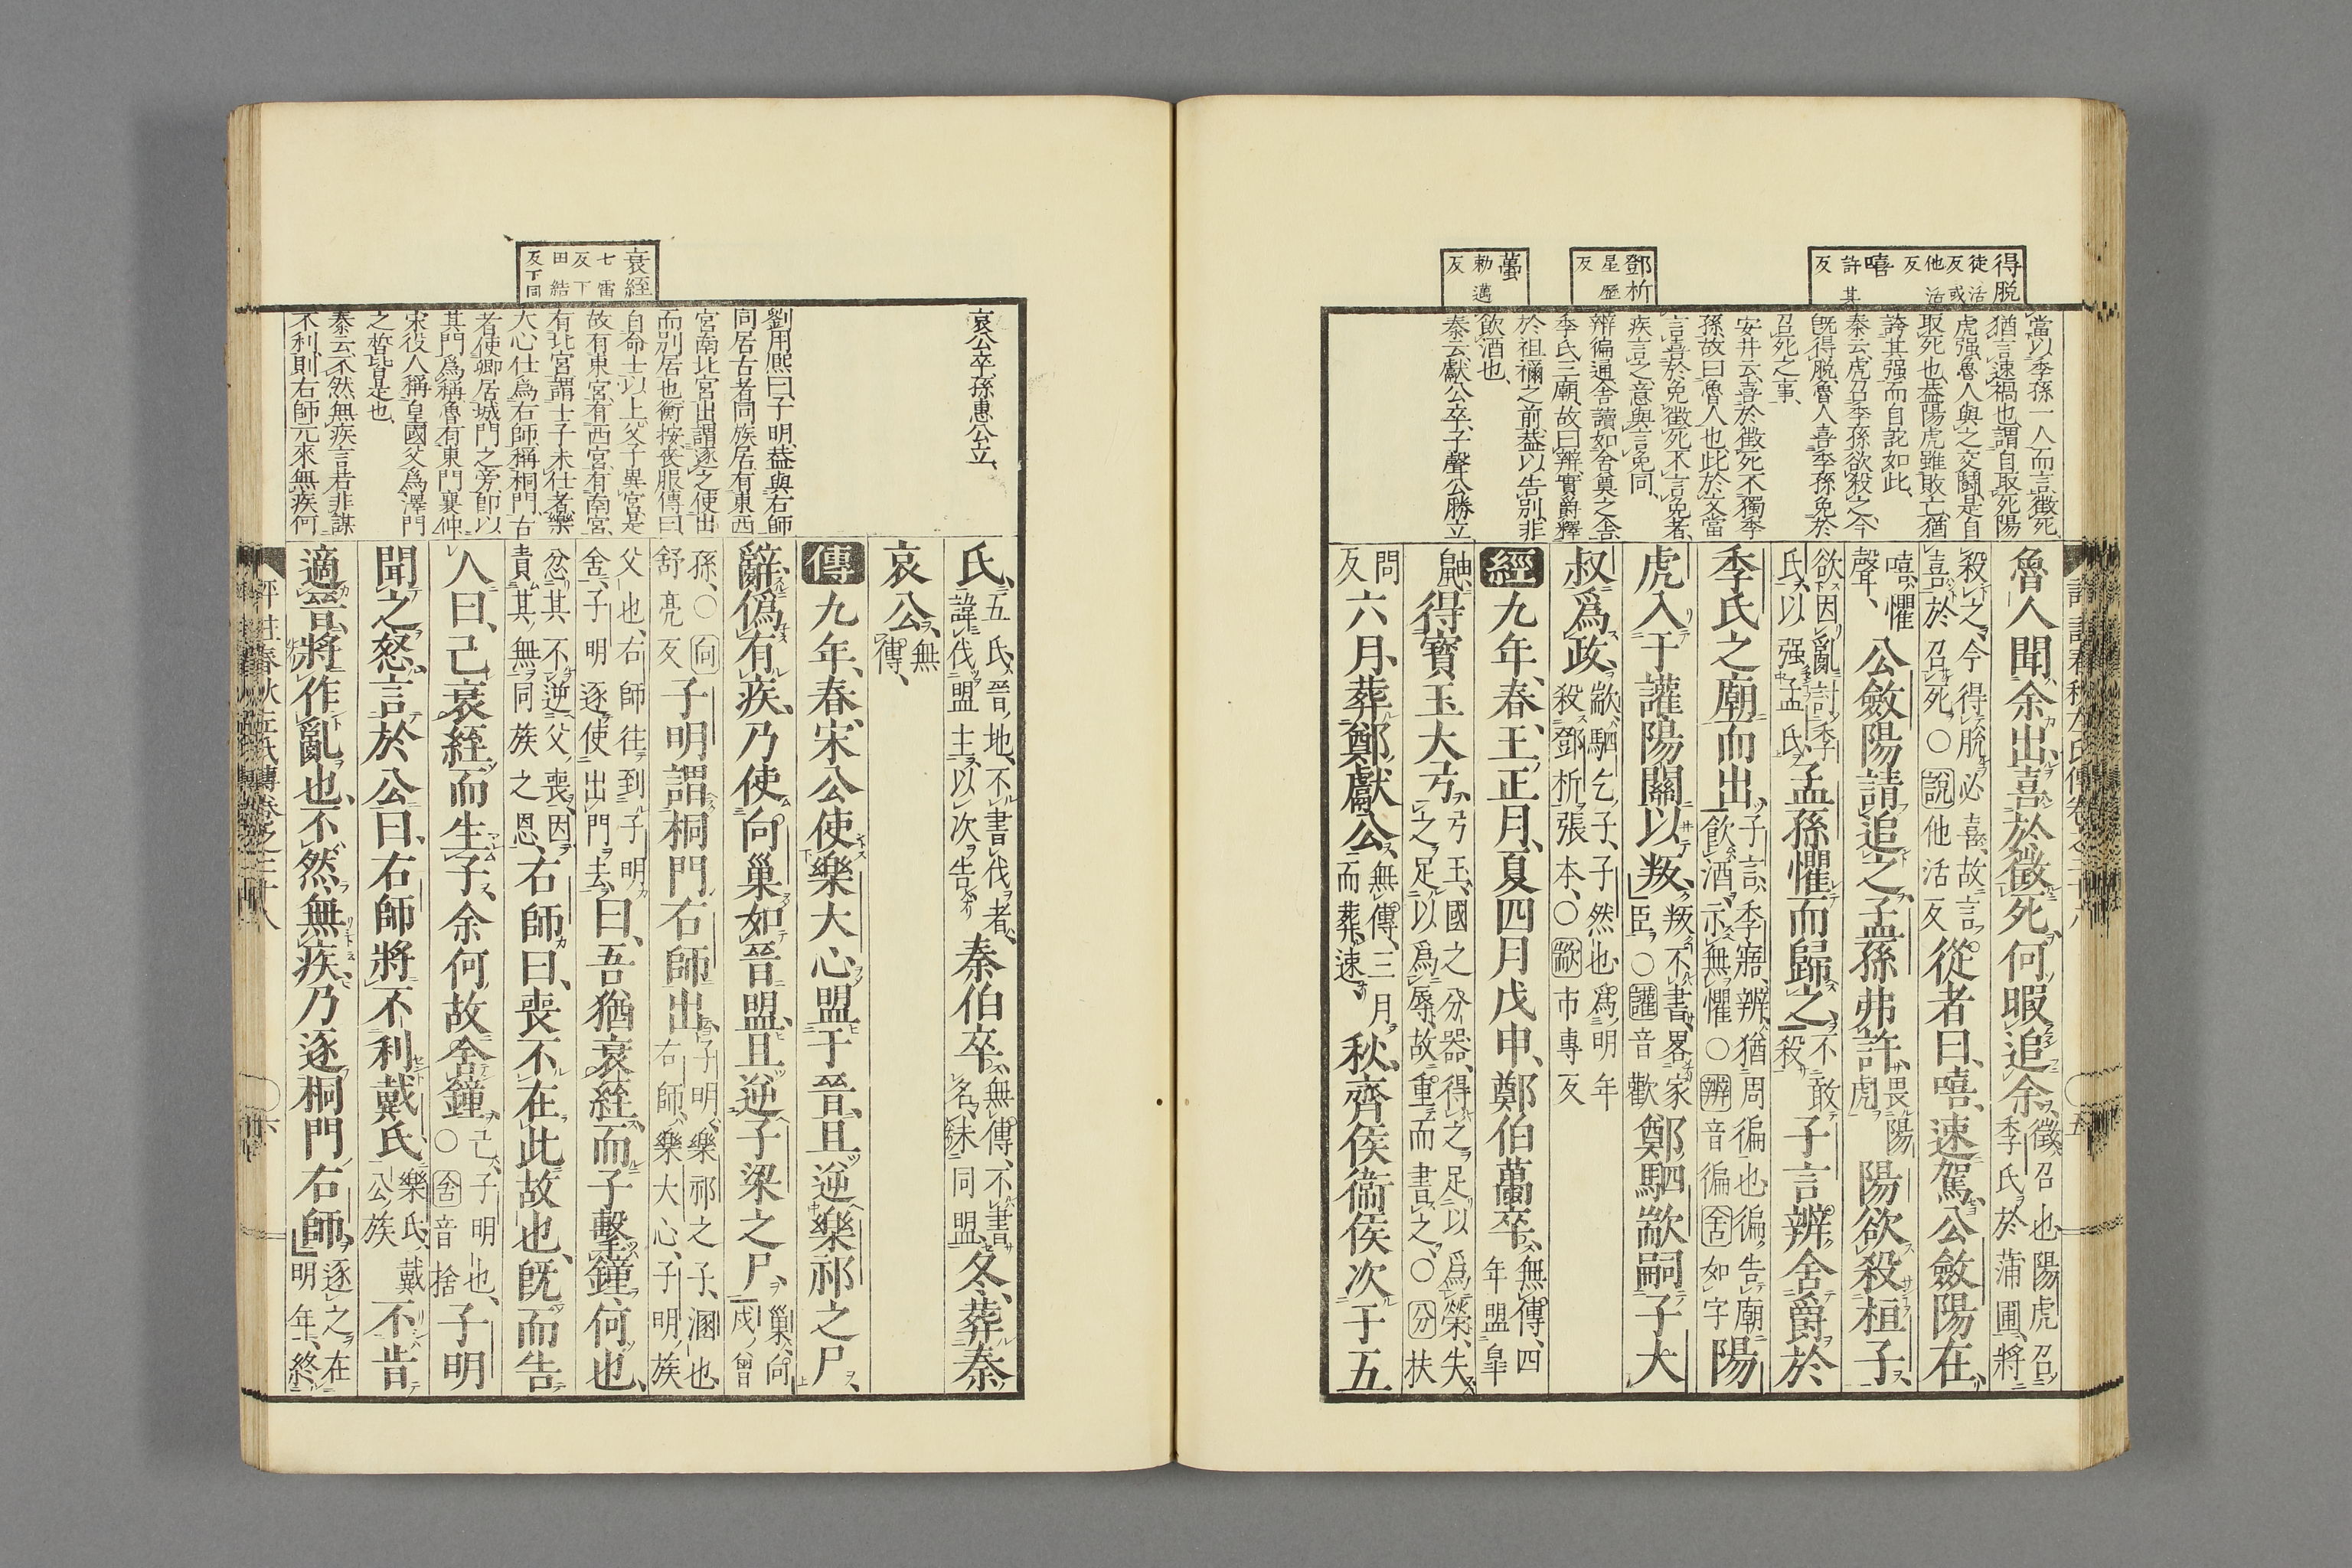 得脫 徒活反或他活反 嘻 許其反
鄧析 星歷反
蠆 勑邁反
當以季孫一人而言徵死
猶言速禍也謂自取死陽
虎强魯人與之交鬪是自
取死也益陽虎雖敗亡猶
誇其强而自詫如此、
秦云虎召季孫欲殺之今
旣得脫魯人喜季孫免於
召死之事、
安井云喜於徵死不獨季
孫故曰魯人也此於文當
言喜於免徵死不言免者
疾言之意與言免同、
辨徧通舍讀如舍奠之舍
季氏三廟故曰辨實爵釋
於祖禰之前葢以告別非
飲酒也、
秦云獻公卒子聲公勝立
魯人聞余出、喜於徵死、何暇追余、徵召也陽虎召季氏於蒲圃將
殺之、今得脫必喜、故言喜於召死〇說他活反從者曰、嘻、速駕、公斂陽在、
嘻、懼聲、公斂陽請追之、孟孫弗許、畏陽虎陽欲殺桓子、
欲因亂討季氏、以强孟氏、孟孫懼而歸之、不敢殺子言辨舍爵於
季氏之廟而出、子言、季寤、辨、猶周徧也、徧告廟飲酒、示無懼〇辨音徧舍如字陽
虎入于讙陽關以叛、叛不書、畧家臣〇讙音歡鄭駟歂嗣子大
叔爲政、歂、駟乞子、子然也、爲明年殺鄧析張本、〇歂市專反
經九年、春、王正月、夏四月戊申、鄭伯蠆卒、無傳、四年盟皐
鼬、得寶玉大弓、弓玉、國之分器、得之足以爲榮、失之足以爲辱、故重而書之、〇分扶
問反六月、葬鄭獻公、無傳、三月而葬、速、秋、齊侯衞侯次于五
衰絰 七雷反下田結反下同
哀公卒孫惠公立、
劉用熙曰子明葢與右師
同居古者同族居有東西
宮南北宮出謂逐之使出
而別居也衡按喪服傳曰
自命士以上父子異宮是
故有東宮有西宮有南宮
有北宮謂士子未仕者樂
大心仕爲右師稱桐門右
者使卿居城門之旁卽以
其門爲稱魯有東門襄仲
宋役人稱皇國父爲澤門
之晳皆是也、
秦云不然無疾言若非謀
不利則右師元來無疾何
氏、五氏、晉地、不書伐者、諱伐盟主、以次告、秦伯卒、無傳、不書名、未同盟、冬、葬秦
哀公、無傳、
傳九年、春、宋公使樂大心盟于晉、且逆樂祁之尸、
辭、僞有疾、乃使向巢如晉盟、且逆子梁之尸、巢、向戌曾
孫、〇向舒亮反子明謂桐門右師出、子明、樂祁之子、溷也、右師、樂大心、子明族
父也、右師往到子明舍、子明逐使出門去、曰、吾猶衰絰、而子擊鐘、何也、
忿其不逆父喪、因責其無同族之恩、右師曰、喪不在此故也、旣而告
人曰、己衰絰而生子、余何故舍鐘、己、子明也、〇舍音捨子明
聞之怒、言於公曰、右師將不利戴氏、樂氏、戴公族不肯
適晉、將作亂也、不然無疾、乃逐桐門右師、逐之在明年、終